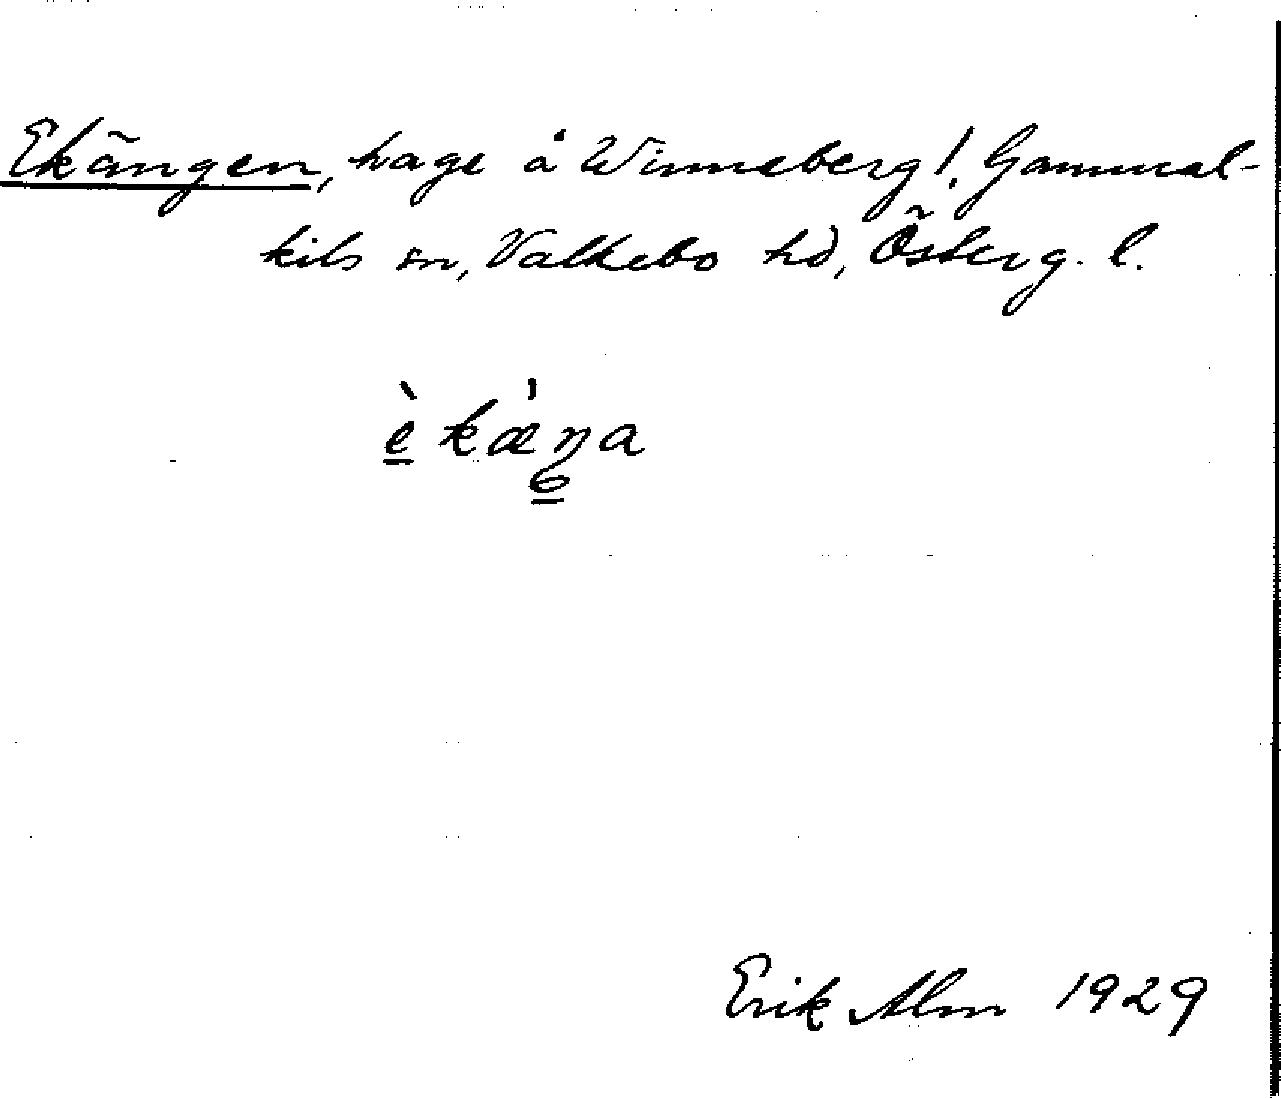 Ekängen, hage å Winneberg!, Gammal-
kils sn, Valkebo hd, Österg. l.
è kæ̀ŋa
Erik Alm 1929